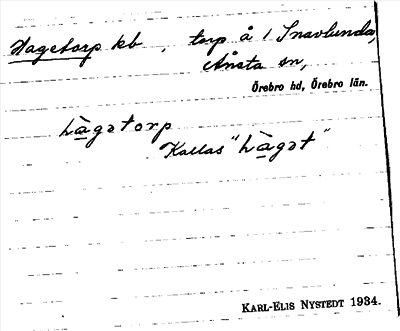 Hagetorp kb, torp å 1 Snavlunda,
Ånsta sn,
Örebro hd, Örebro län.
hàgətɔrp
Kallas "hàgət"
KARL-ELIS NYSTEDT 1934.